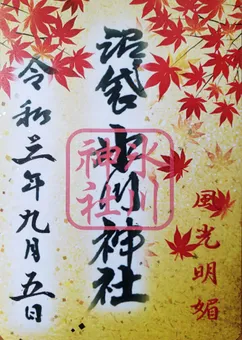 風光明媚
沼袋氷川神社
氷川神社
令和三年九月五日